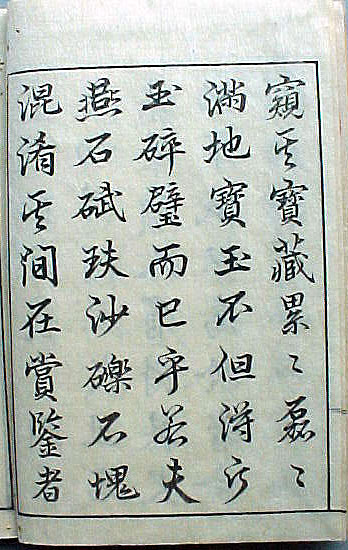 窺其寶藏累〻磊〻
滿地寶玉不但得斤
玉碎璧而已乎若夫
燕石碔玞沙礫石塊
混淆其間在賞鑒者